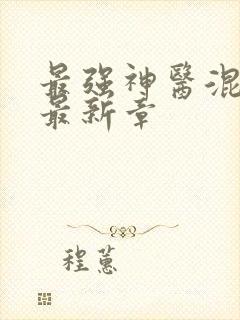 最强神醫混
最新章
程蕙